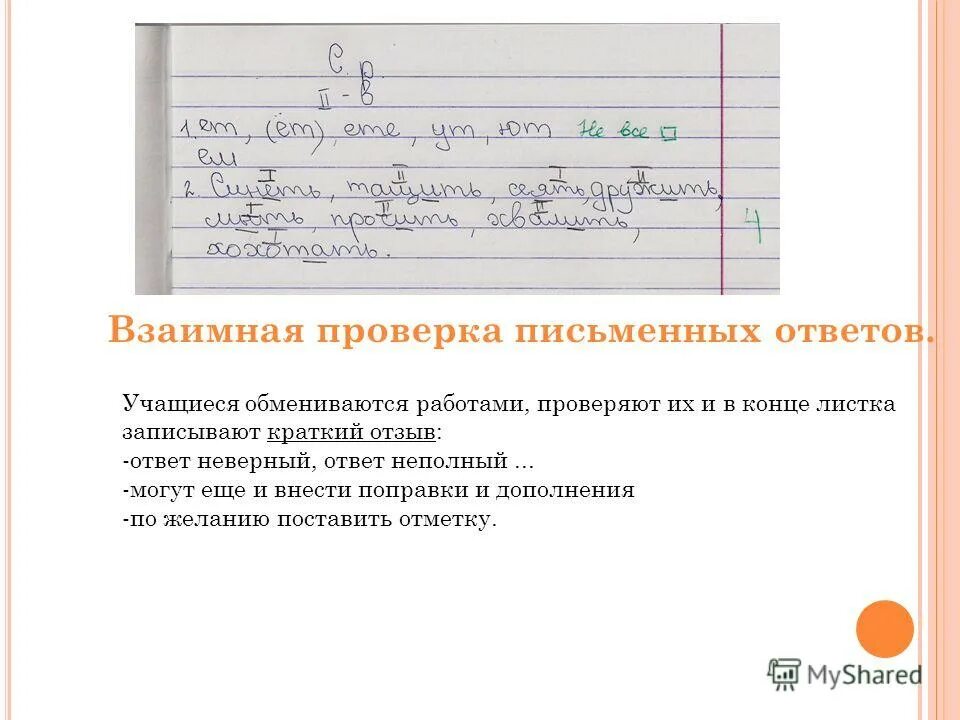 С. р.
II - в
1. ет, (ёт), ете, ут, ют Не все □
ем
2. Синеть, тащить, сеять, дружить,
I II I II
мыть, просить, хвалить, 4
I II II
хохотать.
I
Взаимная проверка письменных ответов.
Учащиеся обмениваются работами, проверяют их и в конце листка
записывают краткий отзыв:
-ответ неверный, ответ неполный ...
-могут еще и внести поправки и дополнения
-по желанию поставить отметку.
MyShared